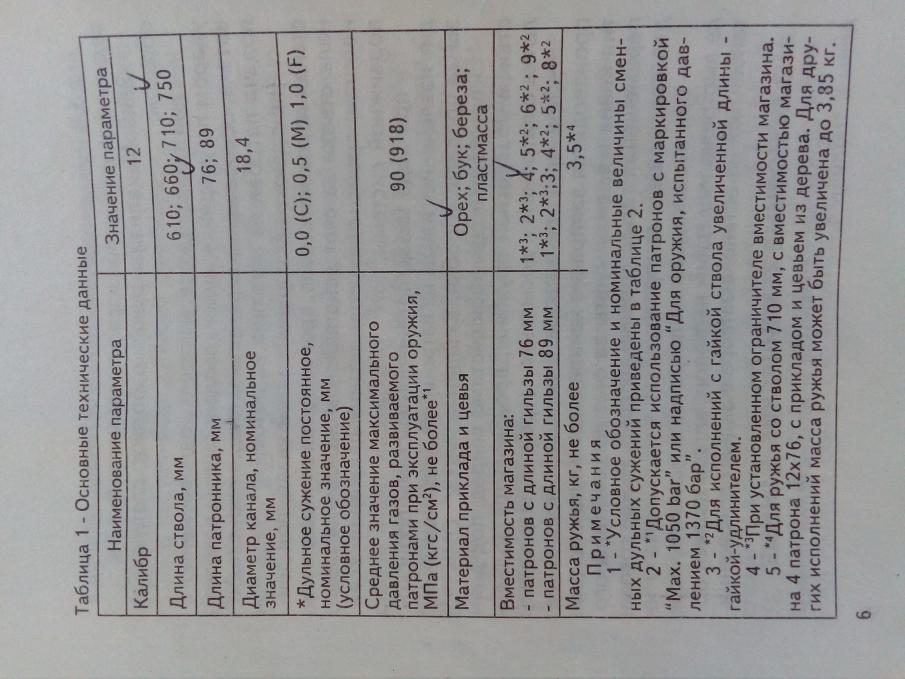 Таблица 1 - Основные технические данные
Наименование параметра
Значение параметра
Калибр
12
Длина ствола, мм
610; 660; 710; 750
Длина патронника, мм
76; 89
Диаметр канала, номинальное
значение, мм
18,4
*Дульное сужение постоянное,
номинальное значение, мм
(условное обозначение)
0,0 (С); 0,5 (М) 1,0 (F)
Среднее значение максимального
давления газов, развиваемого
патронами при эксплуатации оружия,
МПа (кгс/см²), не более*¹
90 (918)
Материал приклада и цевья
Орех; бук; береза;
пластмасса
Вместимость магазина:
- патронов с длиной гильзы 76 мм
1*³; 2*³; 4; 5*²; 6*²; 9*²
- патронов с длиной гильзы 89 мм
1*³; 2*³;3; 4*²; 5*²; 8*²
Масса ружья, кг, не более
3,5*⁴
Примечания
1 - *Условное обозначение и номинальные величины смен-
ных дульных сужений приведены в таблице 2.
2 - *¹Допускается использование патронов с маркировкой
“Max. 1050 bar” или надписью “Для оружия, испытанного дав-
лением 1370 бар”.
3 - *²Для исполнений с гайкой ствола увеличенной длины -
гайкой-удлинителем.
4 - *³При установленном ограничителе вместимости магазина.
5 - *⁴Для ружья со стволом 710 мм, с вместимостью магази-
на 4 патрона 12х76, с прикладом и цевьем из дерева. Для дру-
гих исполнений масса ружья может быть увеличена до 3,85 кг.
6